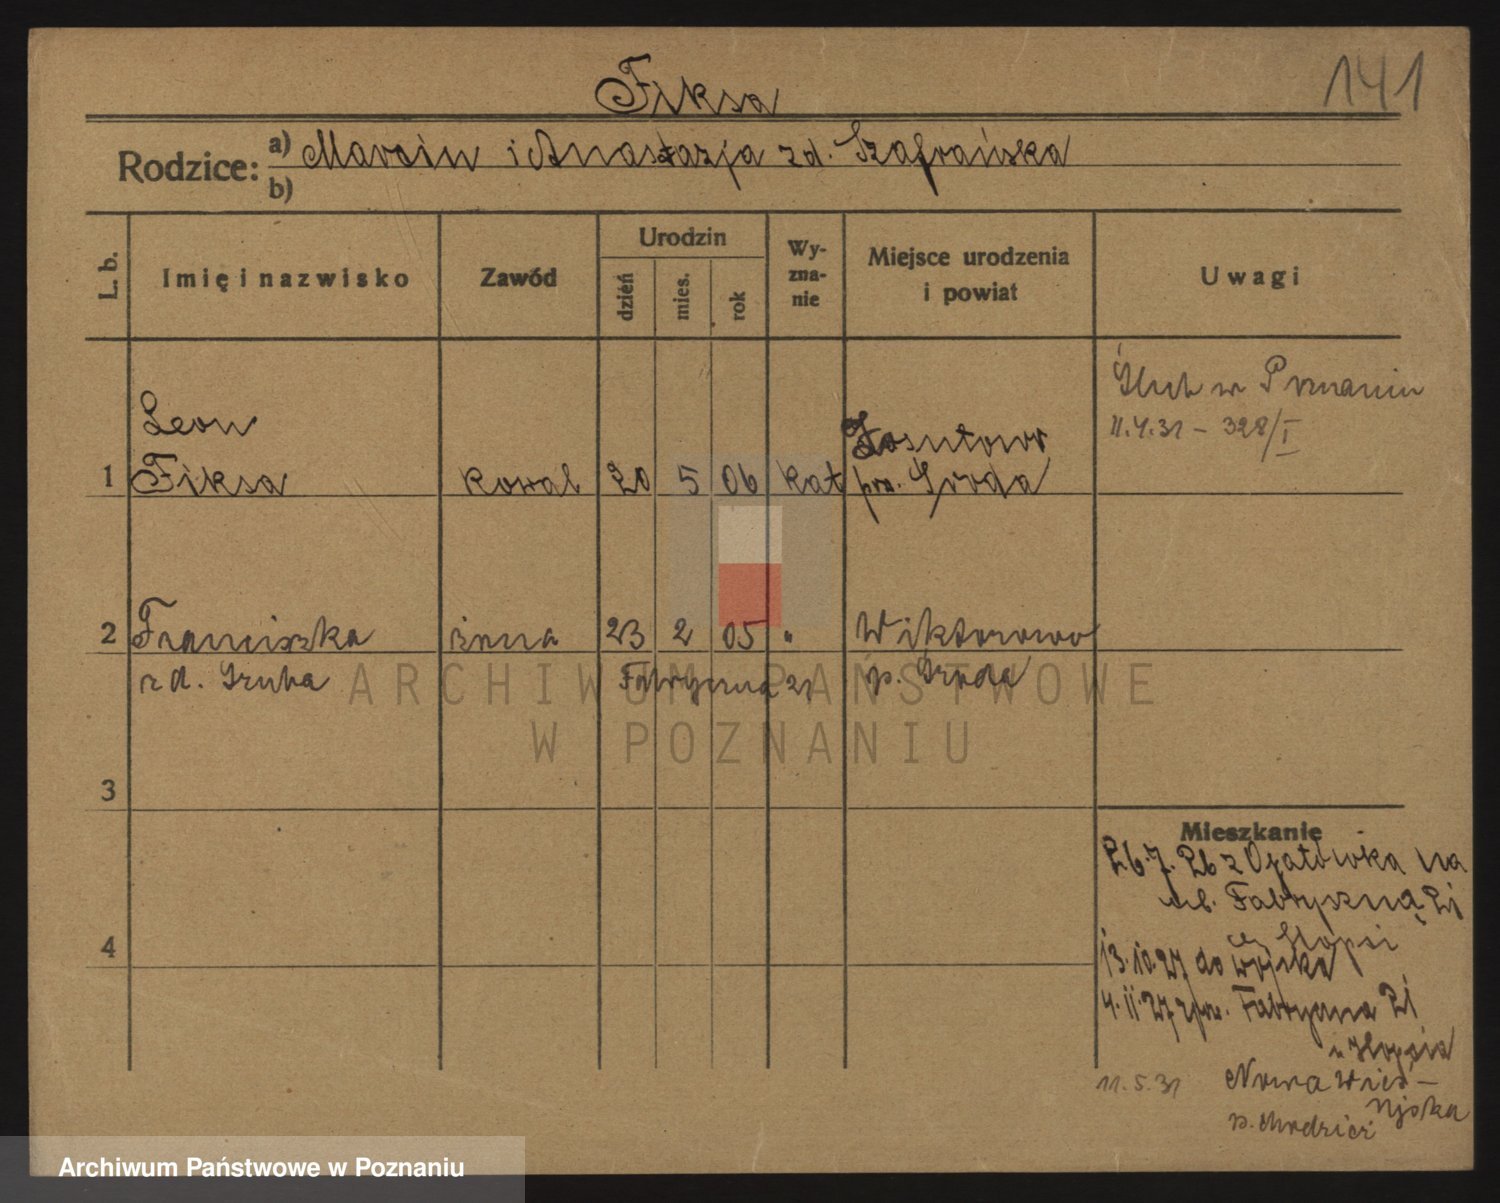 Fiksa
141
Rodzice:
a) Marcin i Anastazja zd. Szafrańska
b)
L. b.
Imię i nazwisko
Zawód
Urodzin
dzień
mies.
rok
Wy-
zna-
nie
Miejsce urodzenia
i powiat
Uwagi
Ślub w Poznaniu
11.4.31 - 328/I
Leon
1 Fiksa kowal 20 5 06 kat
pow. Środa
2 Franciszka żona 23 2 05 " Wiktorowo
zd. Gruba Fabryczna 21 p. Środa
3
4
Mieszkanie
26.7.26 z Opatówka na
ul. Fabryczną 21
13.10.27 do wojska
4.11.27 Fabryczna 21
11.5.31 Nowa Wieś
p. Chodzież
ARCHIWUM PAŃSTWOWE
W POZNANIU
Archiwum Państwowe w Poznaniu